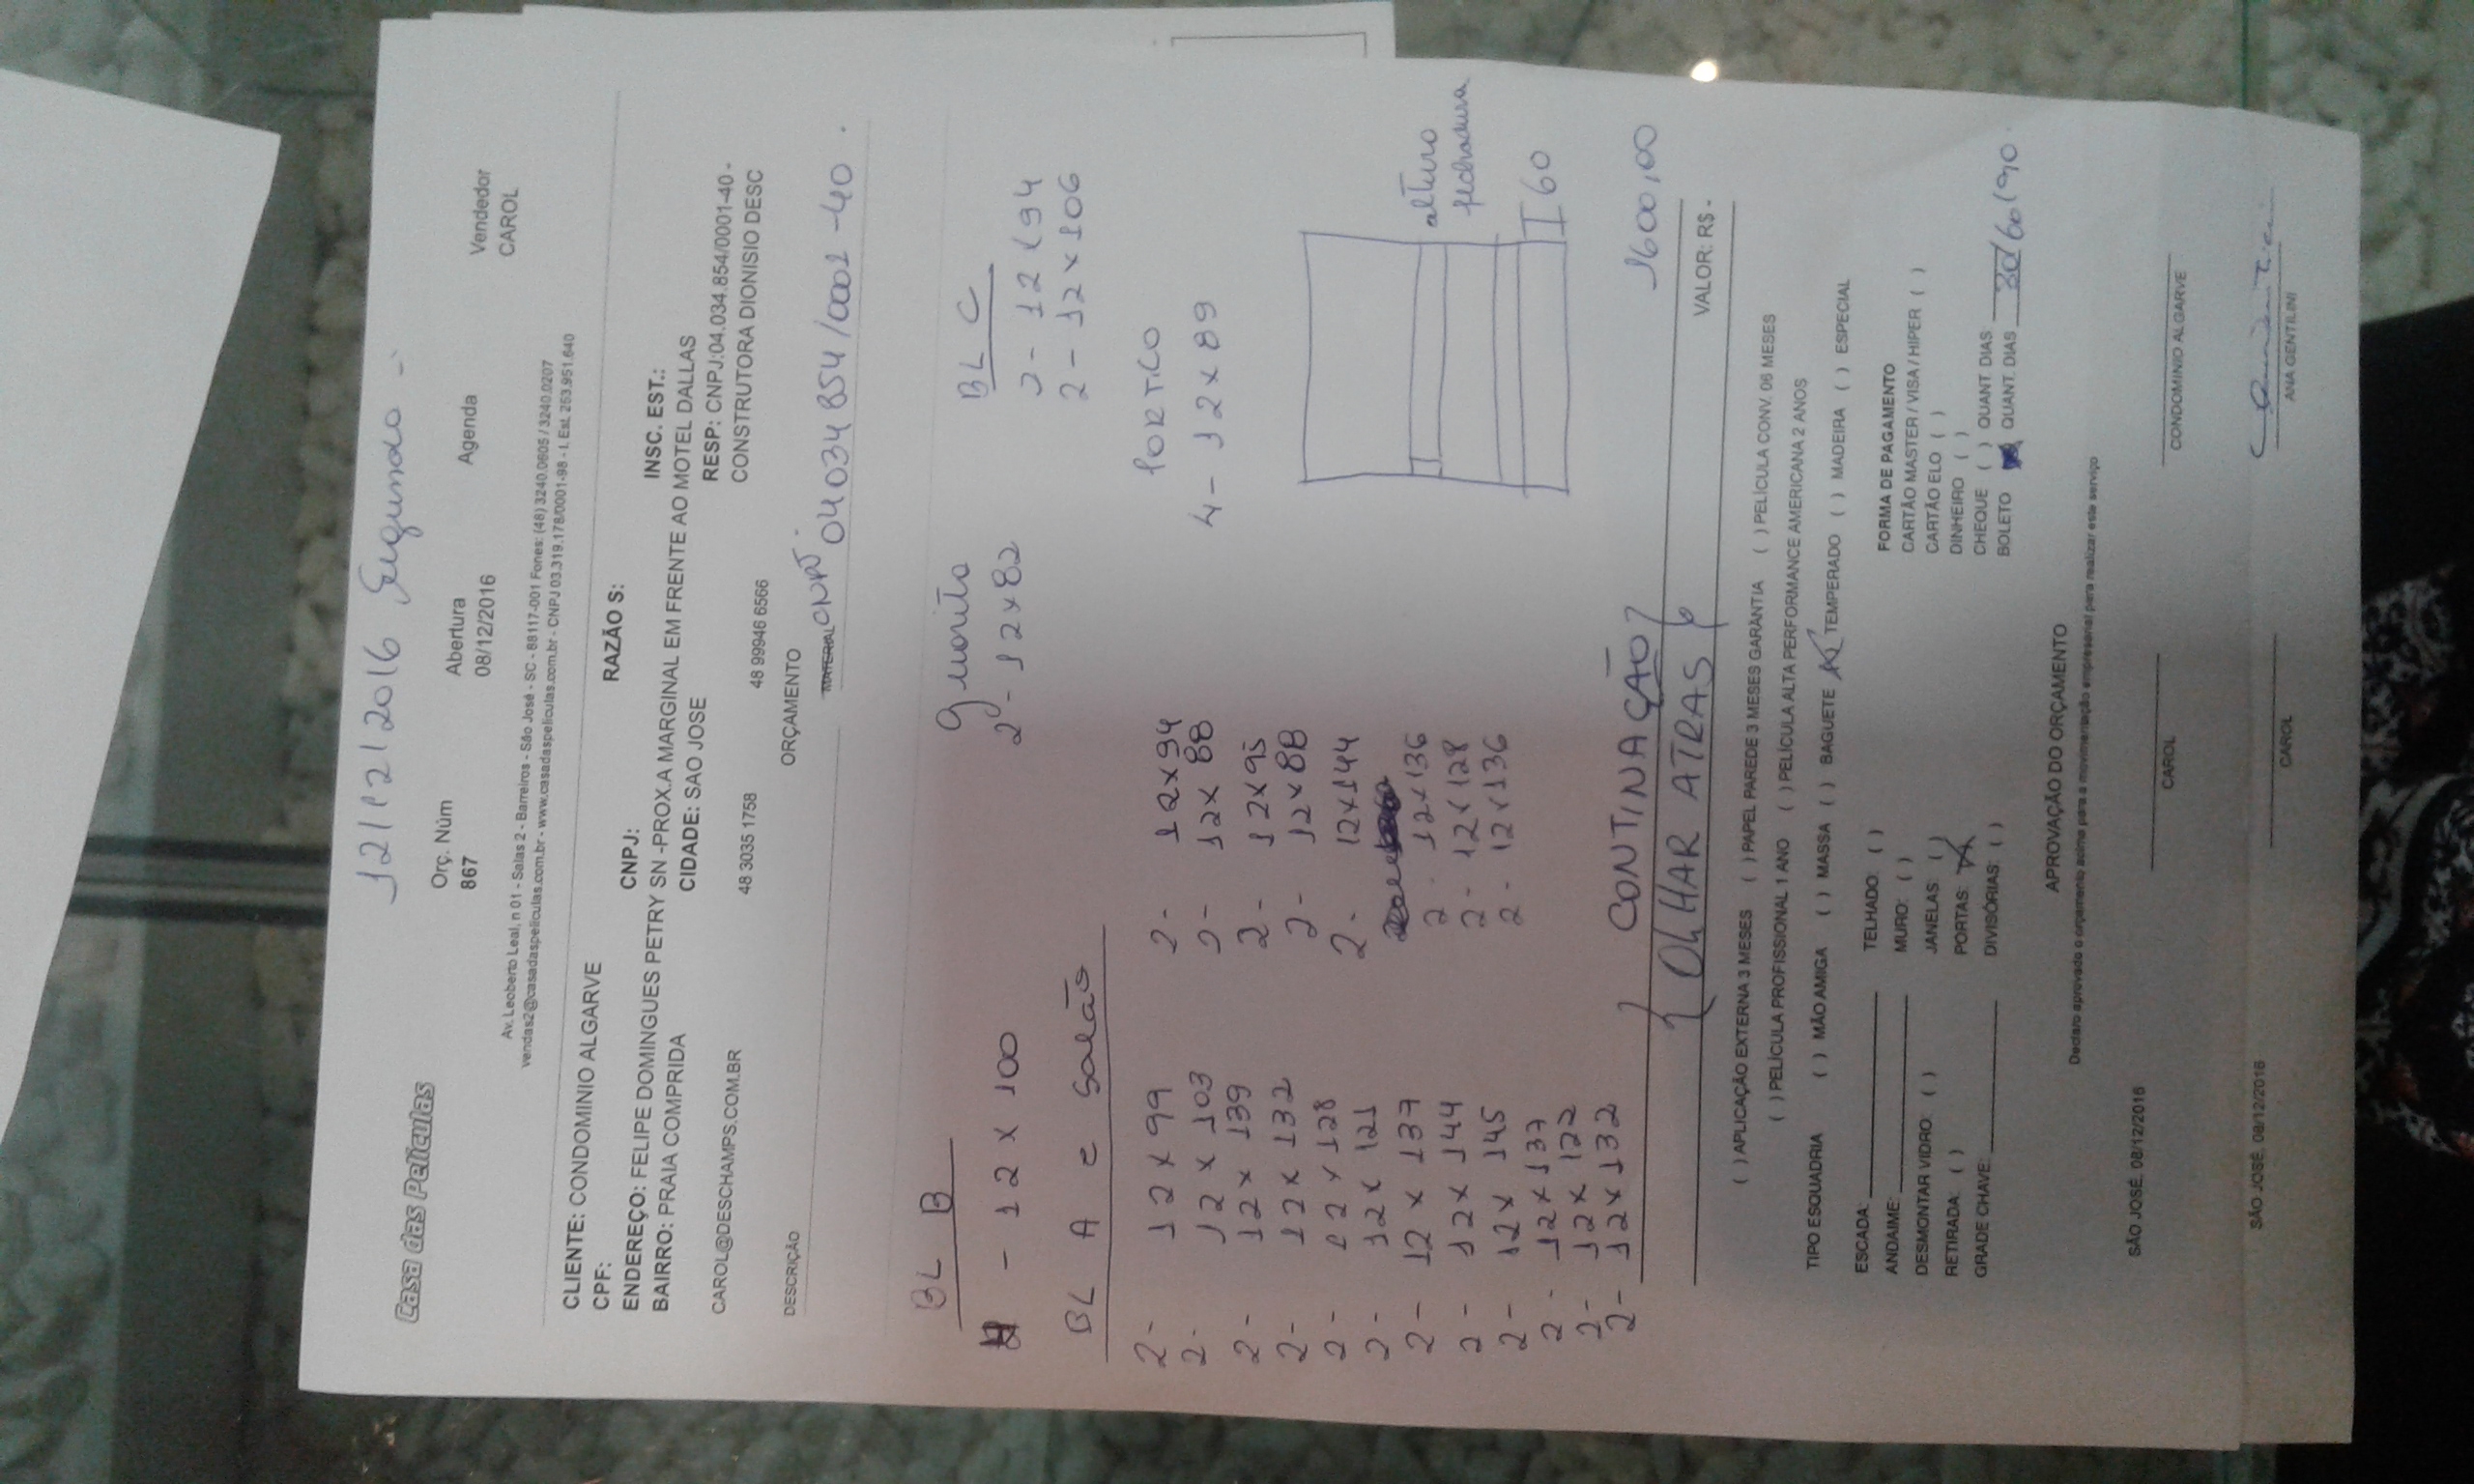 12/12/2016 Segunda -
Casa das Películas
Orç. Núm Abertura Agenda Vendedor
867 08/12/2016 CAROL
Av. Leoberto Leal, n 01 - Salas 2 - Barreiros - São José - SC - 88117-001 Fones: (48) 3240.0605 / 3240.0207
vendas2@casadaspeliculas.com.br - www.casadaspeliculas.com.br - CNPJ 03.319.178/0001-98 - I. Est. 253.951.640
CLIENTE: CONDOMINIO ALGARVE RAZÃO S:
CPF: CNPJ: INSC. EST.:
ENDEREÇO: FELIPE DOMINGUES PETRY SN -PROX.A MARGINAL EM FRENTE AO MOTEL DALLAS
BAIRRO: PRAIA COMPRIDA CIDADE: SAO JOSE RESP: CNPJ:04.034.854/0001-40 -
CONSTRUTORA DIONISIO DESC
CAROL@DESCHAMPS.COM.BR 48 3035 1758 48 99946 6566
ORÇAMENTO
DESCRIÇÃO MATERIAL CNPJ. 04034854/0001-40.
BL B
- 12 x 100
guarita
2 - 12x82
BL C
2 - 12x94
2 - 12x106
BL A e Salão
2 - 12x99
2 - 12x103
2 - 12x139
2 - 12x132
2 - 12x128
2 - 12x121
2 - 12x137
2 - 12x144
2 - 12x145
2 - 12x137
2 - 12x122
2 - 12x132
2 - 12x94
2 - 12x88
2 - 12x95
2 - 12x88
2 - 12x144
2 - 12x136
2 - 12x128
2 - 12x136
PORTICO
4 - 12x89
altura
fechadura
60
CONTINAÇÃO
OLHAR ATRAS
1600,00
VALOR: R$ -
( ) APLICAÇÃO EXTERNA 3 MESES ( ) PAPEL PAREDE 3 MESES GARANTIA ( ) PELÍCULA CONV. 06 MESES
( ) PELÍCULA PROFISSIONAL 1 ANO ( ) PELÍCULA ALTA PERFORMANCE AMERICANA 2 ANOS
TIPO ESQUADRIA ( ) MÃO AMIGA ( ) MASSA ( ) BAGUETE (X) TEMPERADO ( ) MADEIRA ( ) ESPECIAL
ESCADA: TELHADO: ( )
ANDAIME: MURO: ( )
DESMONTAR VIDRO: ( ) JANELAS: ( )
RETIRADA: ( ) PORTAS: (X)
GRADE CHAVE: DIVISÓRIAS: ( )
FORMA DE PAGAMENTO
CARTÃO MASTER / VISA / HIPER ( )
CARTÃO ELO ( )
DINHEIRO ( )
CHEQUE ( ) QUANT DIAS
BOLETO (X) QUANT. DIAS 30/60/90.
APROVAÇÃO DO ORÇAMENTO
Declaro aprovado o orçamento acima para a movimentação empresarial para realizar este serviço
SÃO JOSÉ, 08/12/2016 CAROL CONDOMINIO ALGARVE
SÃO JOSÉ, 08/12/2016 CAROL ANA GENTILINI